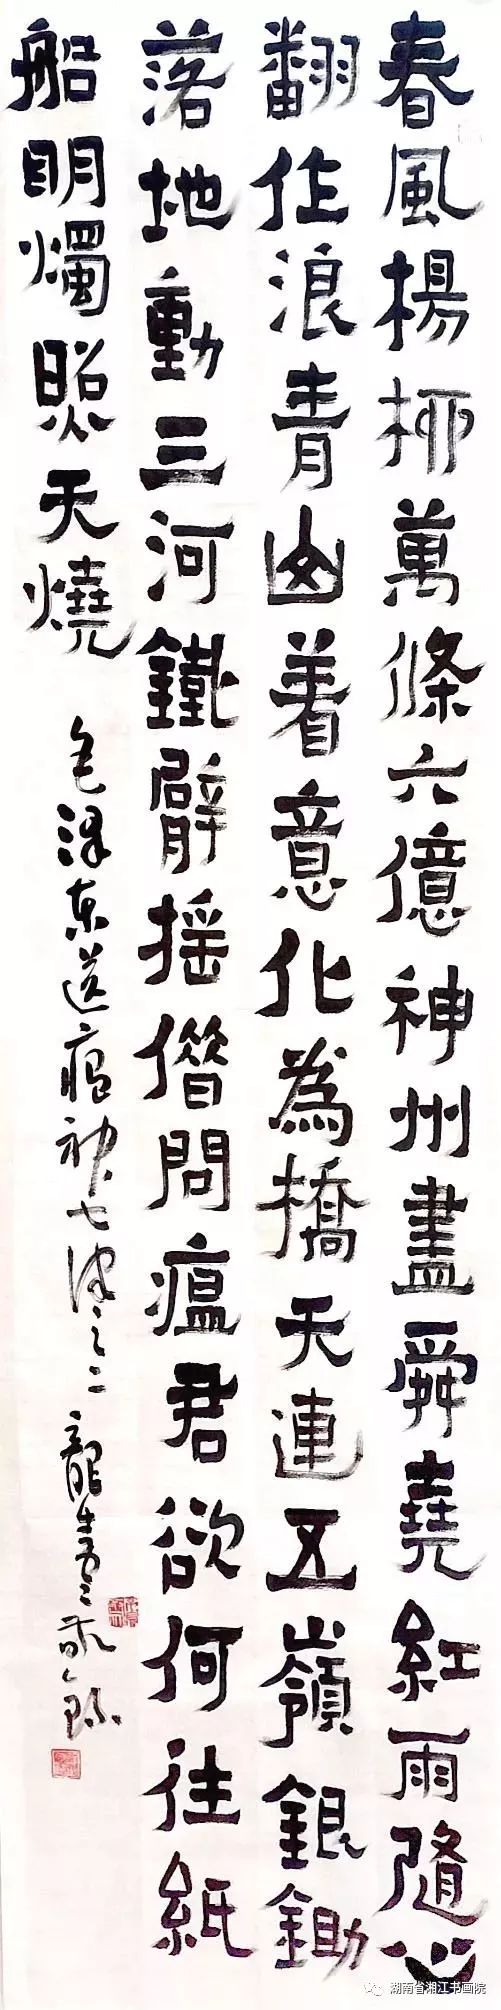 春風楊柳萬條六億神州盡舜堯紅雨隨心
翻作浪青山着意化為橋天連五嶺銀鋤
落地動三河鐵臂摇借問瘟君欲何往紙
船明燭照天燒
毛泽东送瘟神七律之二
湖南省湘江书画院